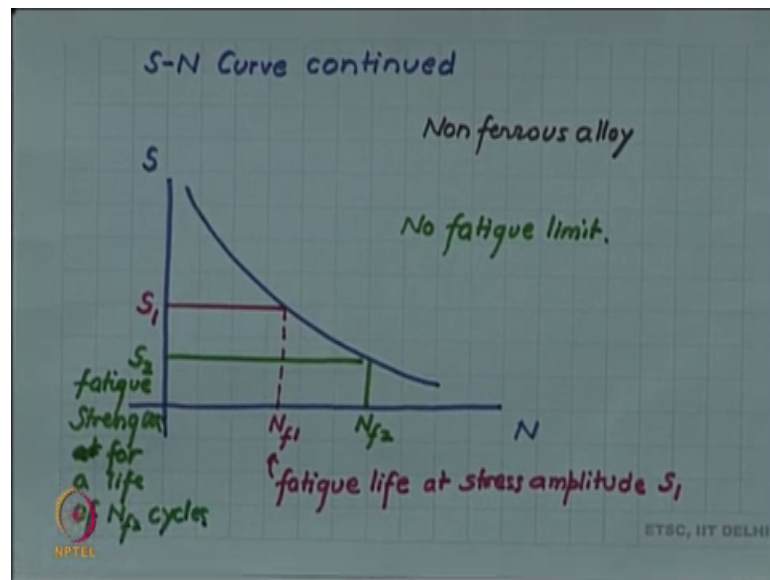 S-N Curve continued
Non ferrous alloy
S
No fatigue limit.
S1
S2
fatigue
Strength
at for
a life
of Nf2 cycles
Nf1
Nf2
N
fatigue life at stress amplitude S1
NPTEL
ETSC, IIT DELHI